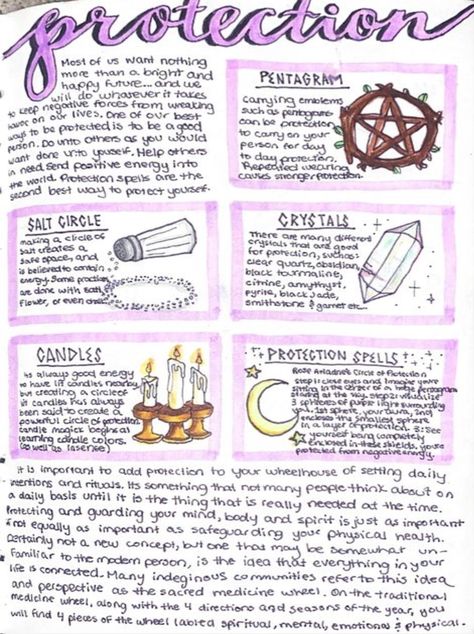 protection
Most of us want nothing
more than a bright and
happy future... and we
will do whatever it takes
to keep negative forces from wreaking
havoc on our lives. One of our best
ways to be protected is to be a good
person. Do unto others as you would
want done unto yourself. Help others
in need. Send positive energy into
the world. Protection spells are the
second best way to protect yourself.
PENTAGRAM
Carrying emblems
such as pentagrams
can be protection
to carry on your
person for day
to day protection.
Repeated wearing
causes stronger protection.
SALT CIRCLE
making a circle of
salt creates a
safe space, and
is believed to contain
energy. Some practices
are done with salt,
flower, or even
CRYSTALS
There are many different
crystals that are good
for protection, such as:
clear quartz, obsidian,
black tourmaline,
citrine, amythyst,
pyrite, black jade,
smithstone & garnet etc.
CANDLES
its always good energy
to have lit candles nearby
but creating a circle of
lit candles has always
been said to create a
powerful circle of protection
candle magick begins at
learning candle colors.
(as well as insense)
PROTECTION SPELLS
Rose Ariadne's Circle of Protection
step 1: close eyes and imagine you're
sitting in the center of a huge pentagram
staring at the sky. step 2: visualize
3 spheres of purple light surrounding
you. 1st sphere, your aura, 2nd
encloses the smallest sphere
in a layer of protection. 3: See
yourself being completely
enclosed in these shields. you're
protected from negative energy.
it is important to add protection to your wheelhouse of setting daily
intentions and rituals. Its something that not many people think about on
a daily basis until it is the thing that is really needed at the time.
Protecting and guarding your mind, body and spirit is just as important
if not equally as important as safeguarding your physical health.
Certainly not a new concept, but one that may be somewhat un-
familiar to the modern person, is the idea that everything in your
life is connected. Many indeginous communities refer to this idea
and perspective as the sacred medicine wheel. On the traditional
medicine wheel, along with the 4 directions and seasons of the year, you
will find 4 pieces of the wheel labled spiritual, mental, emotional & physical.